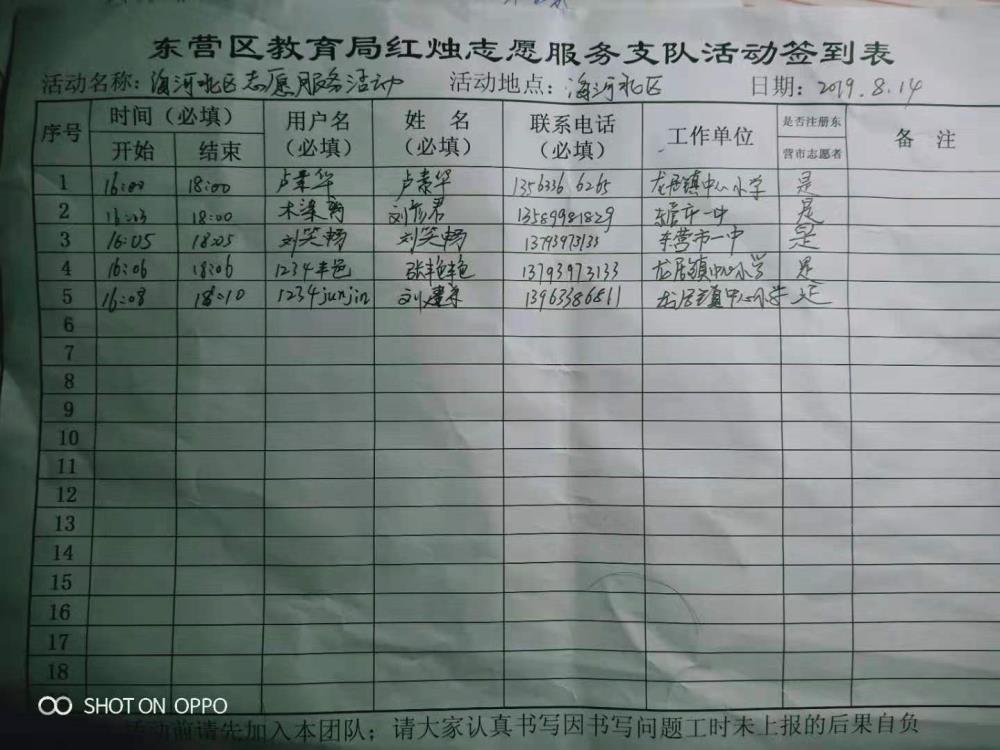 东营区教育局红烛志愿服务支队活动签到表
活动名称：海河北区志愿服务活动 活动地点：海河北区 日期：2019.8.14
序号 时间（必填） 用户名（必填） 姓 名（必填） 联系电话（必填） 工作单位 是否注册东营市志愿者 备 注
开始 结束
1 16:00 18:00 卢素华 卢素华 1356336 6265 龙居镇中心小学 是
2 16:03 18:00 13589981829 东营市一中 是
3 16:05 18:05 刘笑畅 刘笑畅 13793973133 东营市一中 是
4 16:06 18:06 1234丰色 张艳艳 13793973133 龙居镇中心小学 是
5 16:08 18:10 1234junjin 13963386811 龙居镇中心小学 是
6
7
8
9
10
11
12
13
14
15
16
17
18
SHOT ON OPPO
活动前请先加入本团队；请大家认真书写因书写问题工时未上报的后果自负